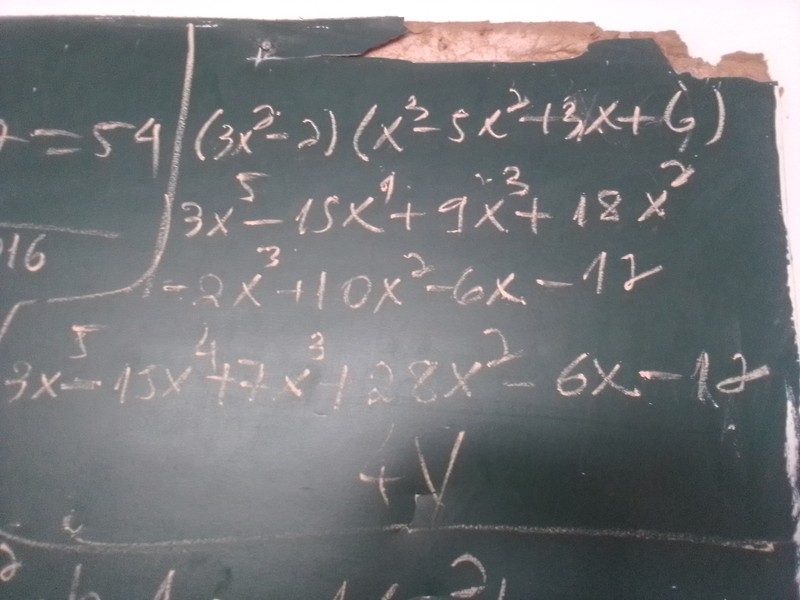 = 54
(3x² - 2)(x³ - 5x² + 3x + 6)
3x⁵ - 15x⁴ + 9x³ + 18x²
16
- 2x³ + 10x² - 6x - 12
3x⁵ - 15x⁴ + 7x³ + 28x² - 6x - 12
+V